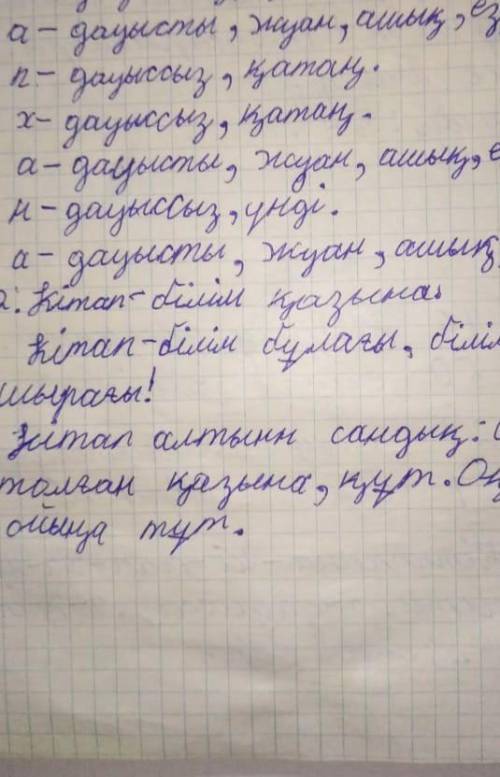 а - дауысты, жуан, ашық, ез
п - дауыссыз, қатаң.
х - дауыссыз, қатаң.
а - дауысты, жуан, ашық, е
н - дауыссыз, үнді.
а - дауысты, жуан, ашық,
2. Кітап - білім қазына.
Кітап - білім бұлағы, білім
шырағы!
Кітап алтынн сандық:
толған қазына, құт. Он
ойыңа тұт.